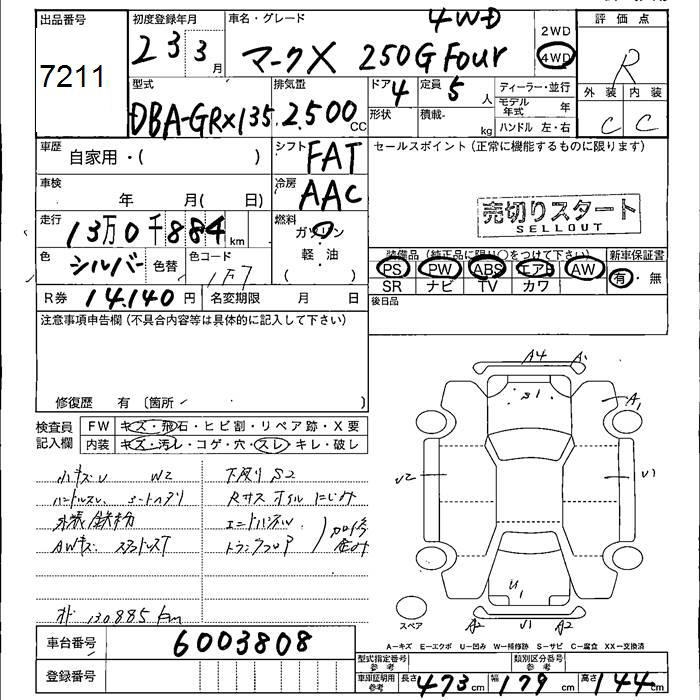 出品番号 初度登録年月 車名・グレード 4WD 2WD 評価点
7211 23 3月 マークX 250G Four 4WD R
型式 排気量 ドア 4 定員 5人 ディーラー・並行 外装 内装
DBA-GRX135 2,500cc 形状 積載- kg モデル年式 年 C C
ハンドル 左・右
車歴 自家用・( ) シフト FAT セールスポイント(正常に機能するものに限ります)
車検 年 月( 日) 冷房 AAC
売切りスタート
SELLOUT
走行 13万0千884km 燃料 ガソリン
軽・油
( )
色 シルバー 色替 色コード 1F7
装備品(純正品に限り○をつけて下さい) 新車保証書
PS PW ABS エアB AW 有・無
SR ナビ TV カワ
R券 14,140円 名変期限 月 日 後日品
注意事項申告欄(不具合内容等は具体的に記入して下さい)
修復歴 有 〔箇所 〕
検査員記入欄 FW キズ・飛石・ヒビ割・リペア跡・X要
内装 キズ・汚レ・コゲ・穴・スレ・キレ・破レ
小キズU W2 下廻りS2
ハンドルスレ シートヘタリ Rサス オイルにじみ
外装鉄粉 エンドパネル
AWキズ トランクフロア
130,885km
A4 A1
S1
A1
U2 U1
U1
A2 U1 A2
スペア
A−キズ E−エクボ U−凹み W−補修跡 S−サビ C−腐食 XX−交換済
車台番号 6003808
登録番号
型式指定番号参考 類別区分番号参考
車庫証明用参考 長さ 473cm 幅 179cm 高さ 144cm